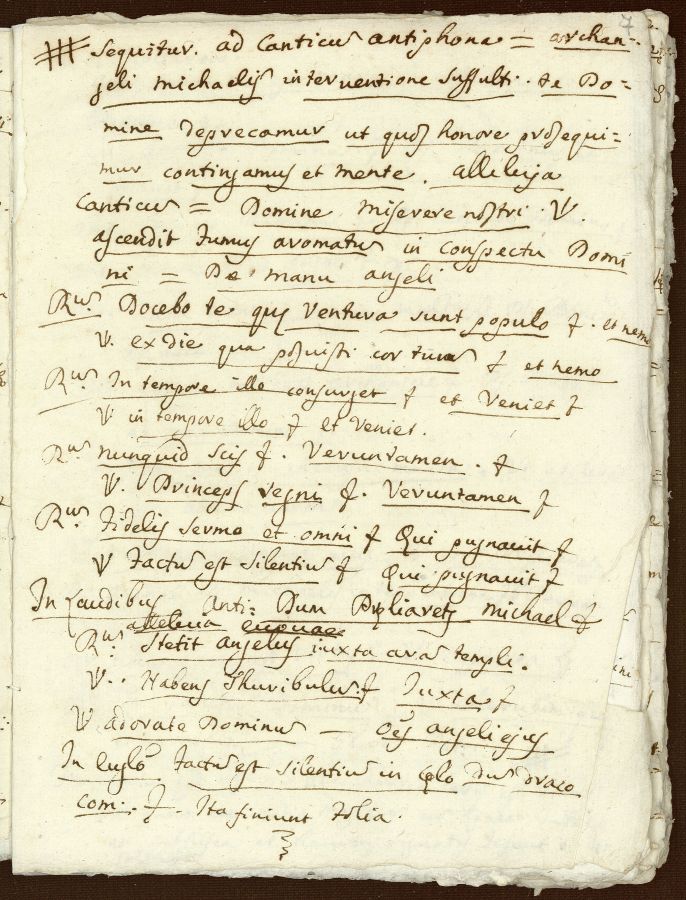 7
Sequitur. ad Canticũ antiphona = archan-
geli michaelis interventione suffulti. te Do=
mine deprecamur ut quos honore prosequi=
mur contingamus et mente. alleluja
Canticũ = Domine miserere nostri ℣.
ascendit fumus aromatũ in conspectu Domi
ni = De manu angeli
Rus. Docebo te que ventura sunt populo ƒ. et nemo
℣. ex die qua posuisti cor tuum ƒ et nemo
Rus In tempore illo consurget ƒ et Veniet ƒ
℣ in tempore illo ƒ et Veniet.
Rus nunquid scis ƒ. Veruntamen. ƒ
℣. Princeps regni ƒ. Veruntamen ƒ
Rus fidelis sermo et omni ƒ Qui pugnavit ƒ
℣ factũ est silentiũ ƒ Qui pugnavit ƒ
In Laudibus anti: Dum Preliaretz michael ƒ
alleluia euouae
Rus: Stetit angelus iuxta aram templi.
℣.. Habens thuribulum ƒ Iuxta ƒ
℣ adorate Dominũ — Oẽs angeli ejus
In factũ est silentiũ in celo Dum draco
com: ƒ. Ita finiunt folia.